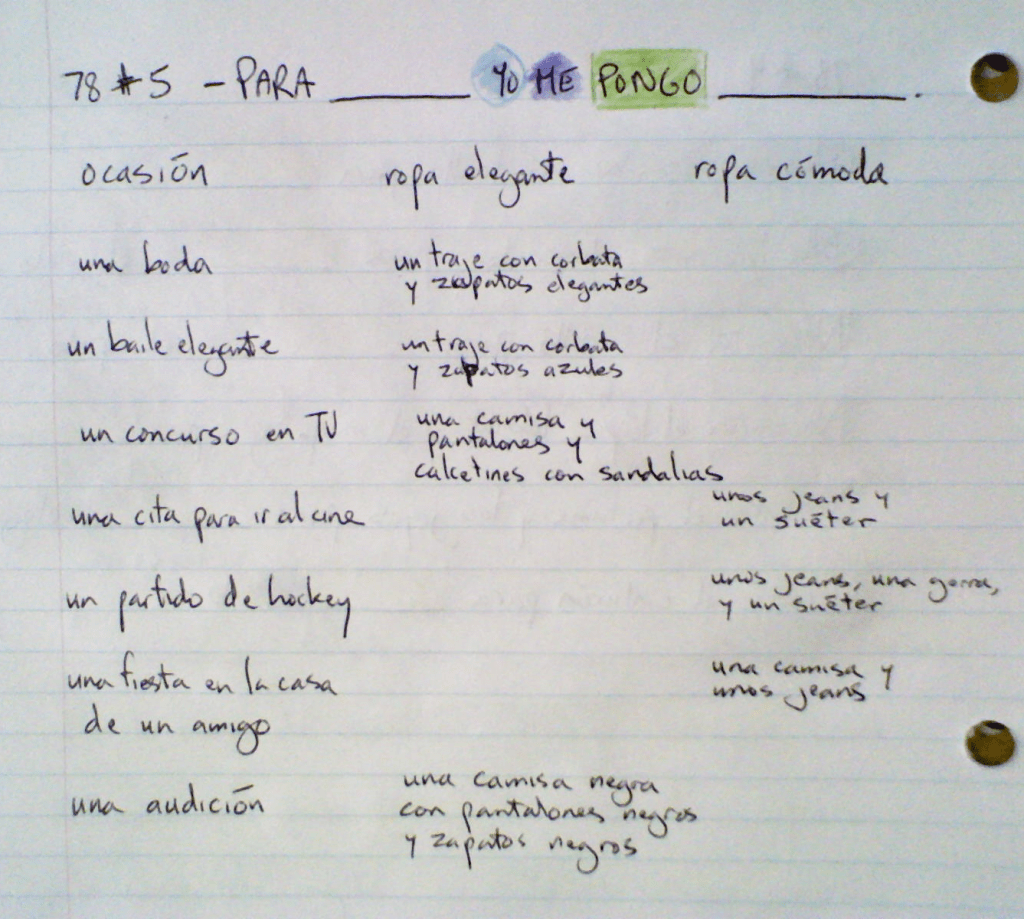 78 #5 - PARA ________ YO ME PONGO ________.
ocasión ropa elegante ropa cómoda
una boda
un traje con corbata
y zapatos elegantes
un baile elegante
un traje con corbata
y zapatos azules
un concurso en TV
una camisa y
pantalones y
calcetines con sandalias
una cita para ir al cine
unos jeans y
un suéter
un partido de hockey
unos jeans, una gorra,
y un suéter
una fiesta en la casa
de un amigo
una camisa y
unos jeans
una audición
una camisa negra
con pantalones negros
y zapatos negros